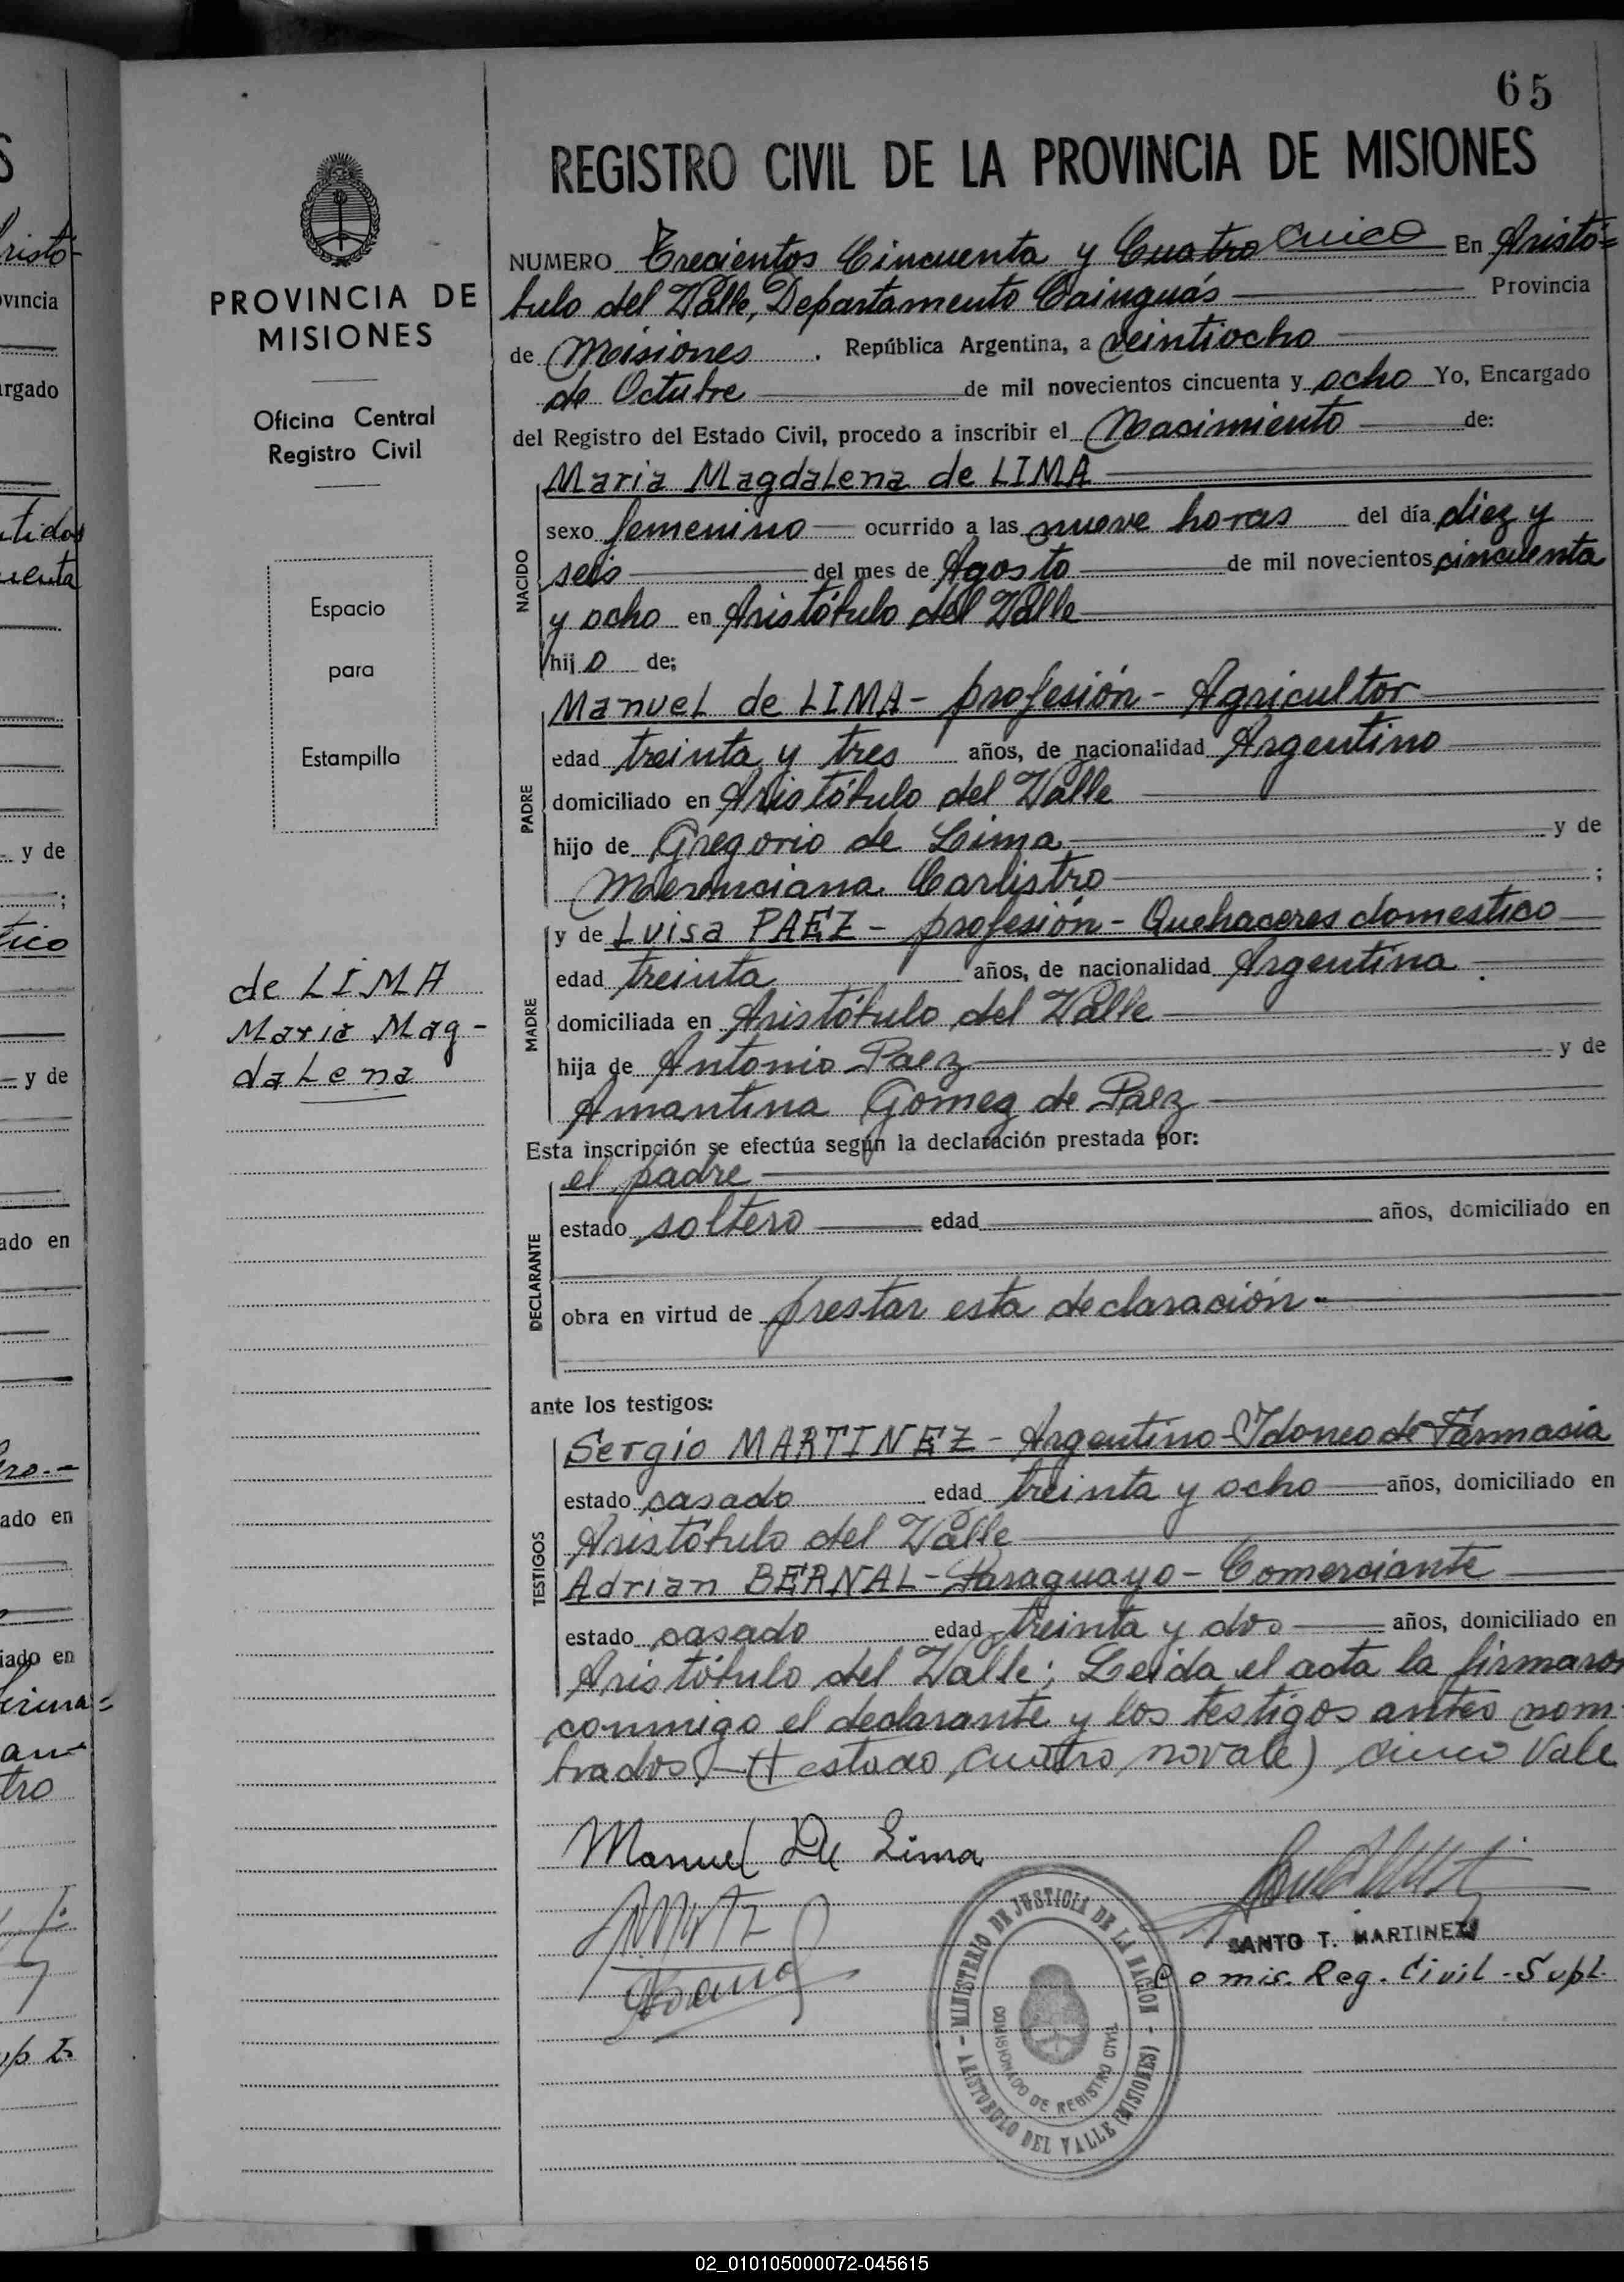 65
REGISTRO CIVIL DE LA PROVINCIA DE MISIONES
NUMERO Trecientos Cincuenta y Cuatro Cinco En Aristó=
bulo del Valle, Departamento Cainguás Provincia
de Misiones . República Argentina, a veintiocho
de Octubre de mil novecientos cincuenta y ocho Yo, Encargado
del Registro del Estado Civil, procedo a inscribir el Nacimiento de:
NACIDO
Maria Magdalena de LIMA
sexo femenino ocurrido a las nueve horas del día diez y
seis del mes de Agosto de mil novecientos cincuenta
y ocho en Aristóbulo del Valle
hij a de;
PADRE
Manuel de LIMA - profesión - Agricultor
edad treinta y tres años, de nacionalidad Argentino
domiciliado en Aristóbulo del Valle
hijo de Gregorio de Lima y de
Carlistro ;
MADRE
y de Luisa PAEZ - profesión - Quehaceres domestico
edad treinta años, de nacionalidad Argentina
domiciliada en Aristóbulo del Valle
hija de Antonio Paez y de
Amantina Gomez de Paez
Esta inscripción se efectúa según la declaración prestada por:
DECLARANTE
el padre
estado soltero edad años, domiciliado en
obra en virtud de prestar esta declaración.-
ante los testigos:
TESTIGOS
Sergio MARTINEZ - Argentino - Idoneo de Farmacia
estado casado edad treinta y ocho años, domiciliado en
Aristóbulo del Valle
Adrian BERNAL - Paraguayo - Comerciante
estado casado edad treinta y dos años, domiciliado en
Aristóbulo del Valle; Leida el acta la firmaron
conmigo el declarante y los testigos antes nom-
brados.- cuatro no vale) cinco Vale
Manuel De Lima
SANTO T. MARTINEZ
Comis. Reg. Civil - Supl.
MINISTERIO DE JUSTICIA DE LA NACION
- ARISTOBULO DEL VALLE (MISIONES) -
COMISIONADO DE REGISTRO CIVIL
PROVINCIA DE
MISIONES
Oficina Central
Registro Civil
Espacio
para
Estampilla
de LIMA
Maria Mag-
dalena
risto-
vincia
argado
tidos
uenta
y de
;
tico
y de
ado en
ro.-
ado en
iado en
tro
02_010105000072-045615